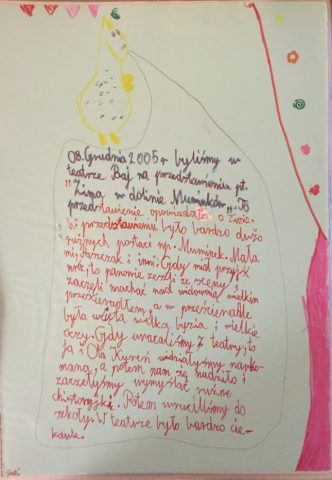 08. Grudnia 2005 r byliśmy w
teatrze Baj na przedstawieniu pt.
"Zima w dolinie Muminków".
przedstawienie opowiadało o zimie.
W przedstawieniu było bardzo dużo
różnych postaci np. Muminek. Mała
mi, Paszczak i inni. Gdy miał przyjść
to panowie zeszli ze sceny i
zaczęli machać nad widownią wielkim
prześcieradłem, a w prześcieradle
była wielka buzia i wielkie
oczy. Gdy wracaliśmy z teatru, to
ja i Ola Kyreń widziałyśmy narko-
mana, a potem nam się nudziło i
zaczełyśmy wymyślać różne
chistoryjki. Potem wruciliśmy do
szkoły. W teatrze było bardzo cie-
kawie.